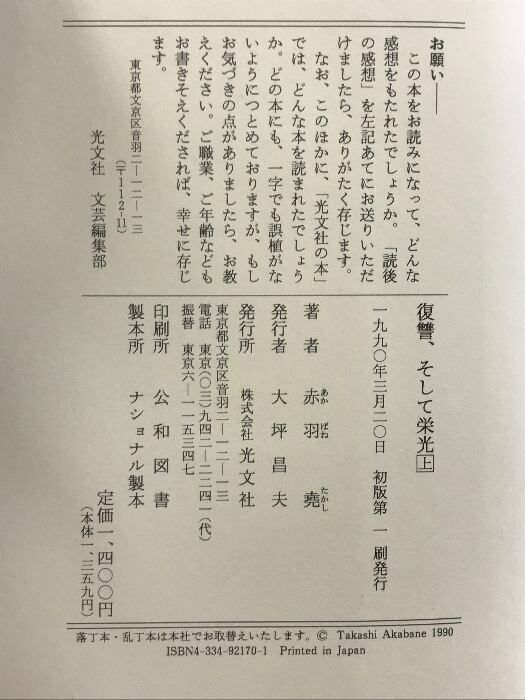 お願い――
この本をお読みになって、どんな
感想をもたれたでしょうか。「読後
の感想」を左記あてにお送りいただ
けましたら、ありがたく存じます。
なお、このほかに、「光文社の本」
では、どんな本を読まれたでしょう
か。どの本にも、一字でも誤植がな
いようにつとめておりますが、もし
お気づきの点がありましたら、お教
えください。ご職業、ご年齢なども
お書きそえくだされば、幸せに存じ
ます。
東京都文京区音羽二―一二―一三
(〒112-11)
光文社 文芸編集部
復讐、そして栄光 上
一九九〇年三月二〇日 初版第一刷発行
著者 赤羽堯
あか ばね たかし
発行者 大坪昌夫
発行所 株式会社 光文社
東京都文京区音羽二―一二―一三
電話 東京(〇三)九四二―二二四一(代)
振替 東京六―一一五三四七
印刷所 公和図書
製本所 ナショナル製本
定価一、四〇〇円
(本体一、三五九円)
落丁本・乱丁本は本社でお取替えいたします。© Takashi Akabane 1990
ISBN4-334-92170-1 Printed in Japan